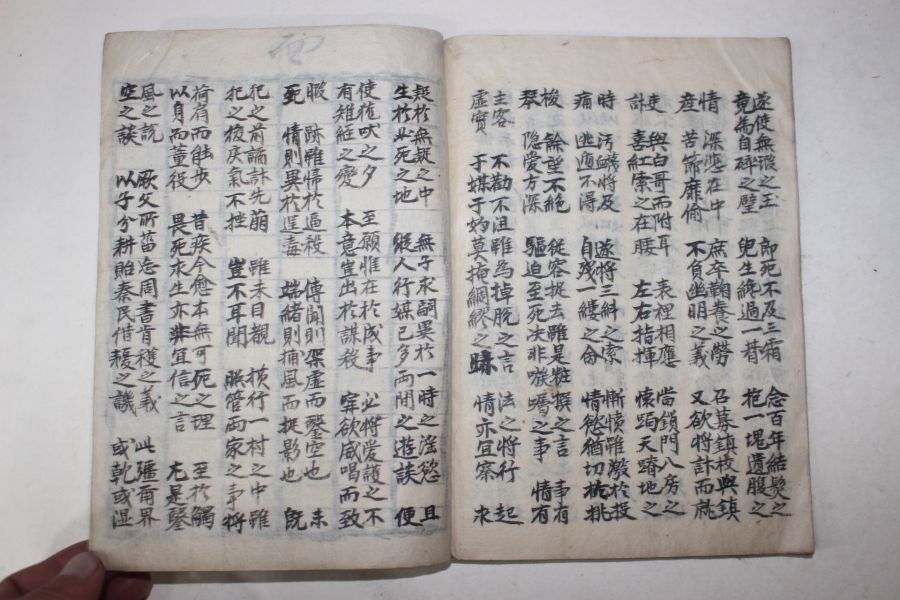 遂使無瑕之玉 即死不及三霜 念百年結髮之
竟為自碎之璧 兒生纔過一朞 抱一塊遺腹之
情 深悲在中 庶卒鞠養之勞 召募鎮校與鎮
産 苦節靡偷 不負幽明之義 又欲將計而就
吏 與白哥而附耳 表裡相應 尚鎖門八房之
計 喜紅索之在腰 左右指揮 懷跼天蹐地之
時 汚衊將及 遂將三糾之索 慚憤雖激於投
痛 逃遁不得 自残一縷之命 情慾猶切挑
梭 餘望不絶 從容捉去雖是粧撰之言 事有
琴 隐愛方深 驅迫至死决非嗾囑之事 情有
主客 不勸不沮雖為掉脫之言 法之將行 起
虚實 于媒于妁莫掩綢繆之跡 情亦宜察 来
疑於無疑之中 無子求嗣異於一時之淫慾 且
生於必死之地 縱人行媒已多両間之遊談 便
使厖吠之夕 至願惟在於成事 必將愛護之不
有雉經之變 本意豈出於謀殺 寧欲威喝而致
暇 跡雖歸於逼殺 傳聞則架虚而鑿空也 未
死 情則異於逞毒 端緒則捕風而捉影也 既
犯之前 先崩 雖未目覩 横行一村之中雖
犯之後戾氣不挫 豈不耳聞 管両家之事將
荷肩而能步 昔疾今愈本無可死之理 至於觸
以身而董役 畏死求生亦非宜信之言 尤是鑿
風之説 厥父所菑忽周書肯穫之義 此疆爾界
空之談 以子分耕貽秦民借耰之譏 或乾或湿